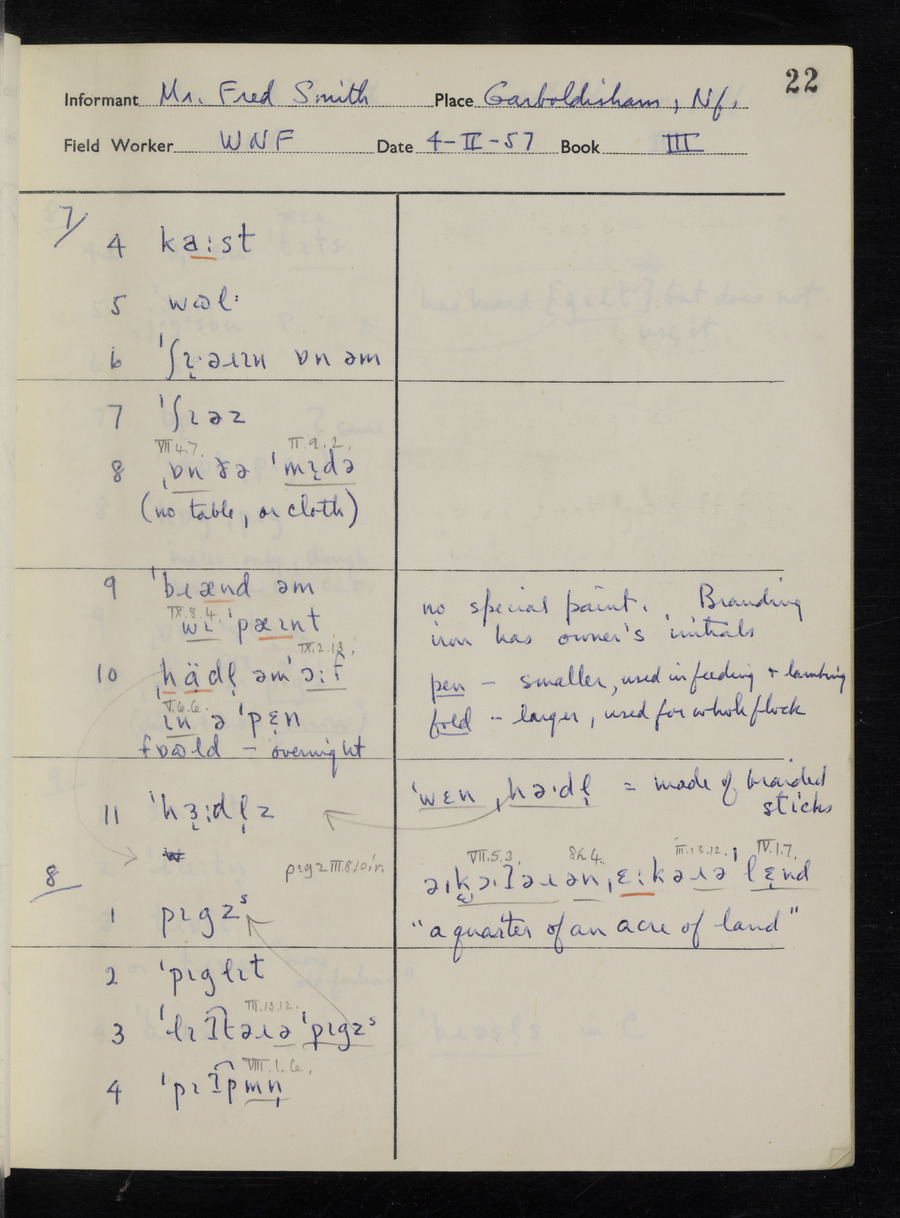 22
Informant Mr. Fred Smith Place Garboldisham, Nf.
Field Worker WNF Date 4-II-57 Book III
7/
4 ka:st
5 wɷl·
6 ˈʃɪ̨·əɹɪn ɒn əm
7 ˈʃɪəz
VII.4.7. II.9.2.
8 ˌɒn ðə ˈmɪ̨də
(no table, or cloth)
9 ˈbɹænd əm
IX.8.4.
wɪ ˈpæɪnt
no special paint. Branding
iron has owner's initials
IX.2.13.
10 hädl̩ əm ˈɔ:f
V.6.6.
ɪn ə ˈpɛn
fɒɷld – overnight
pen – smaller, used in feeding + lambing
fold – larger, used for whole flock
11 ˈhɜ̨:dl̩z
ˈwɛn ˌhə·dl̩ = made of braided
sticks
8
pɪgz III.8.10 i.r.
1 pɪgzˢ
VII.5.3. 8h4. III.13.12. IV.1.7.
"a quarter of an acre of land"
2 ˈpɪglɪt
III.13.12.
3 ˈlɪʔ͡təɹə ˈpɪgzˢ
VIII.1.6.
4 ˈpɪʔ͡pmn̩